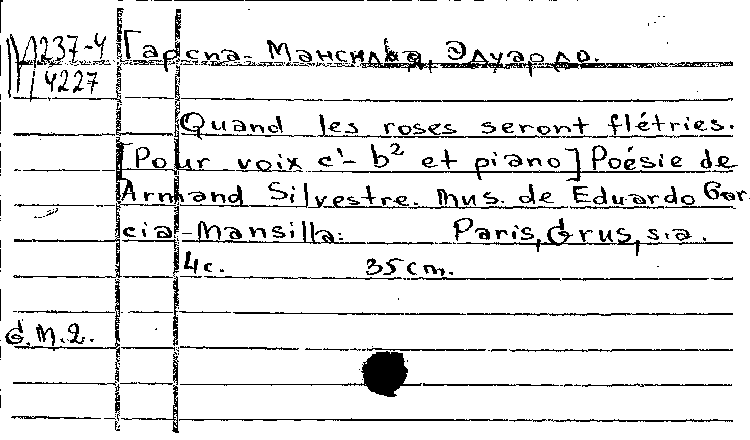 М 237-4
4227
Гарсиа-Мансилья, Эдуардо.
Quand les roses seront flétries.
[Pour voix c¹-b² et piano] Poésie de
Armand Silvestre. Mus. de Eduardo Gar
cia-Mansilla: Paris, Grus, s.a.
4c. 35cm.
G.M.2.